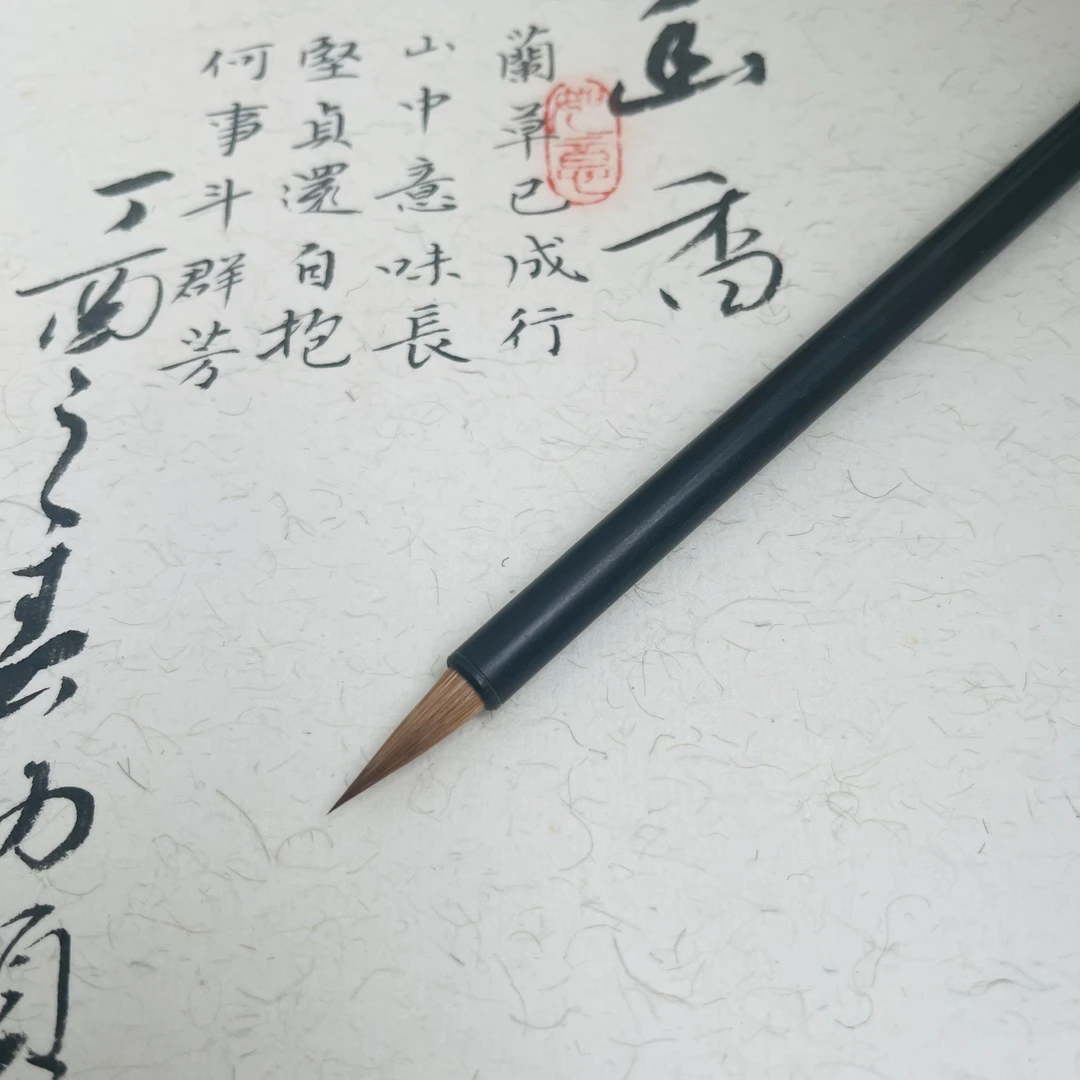 幽香
蘭草已成行
山中意味長
堅貞還自抱
何事斗群芳
丁酉之春